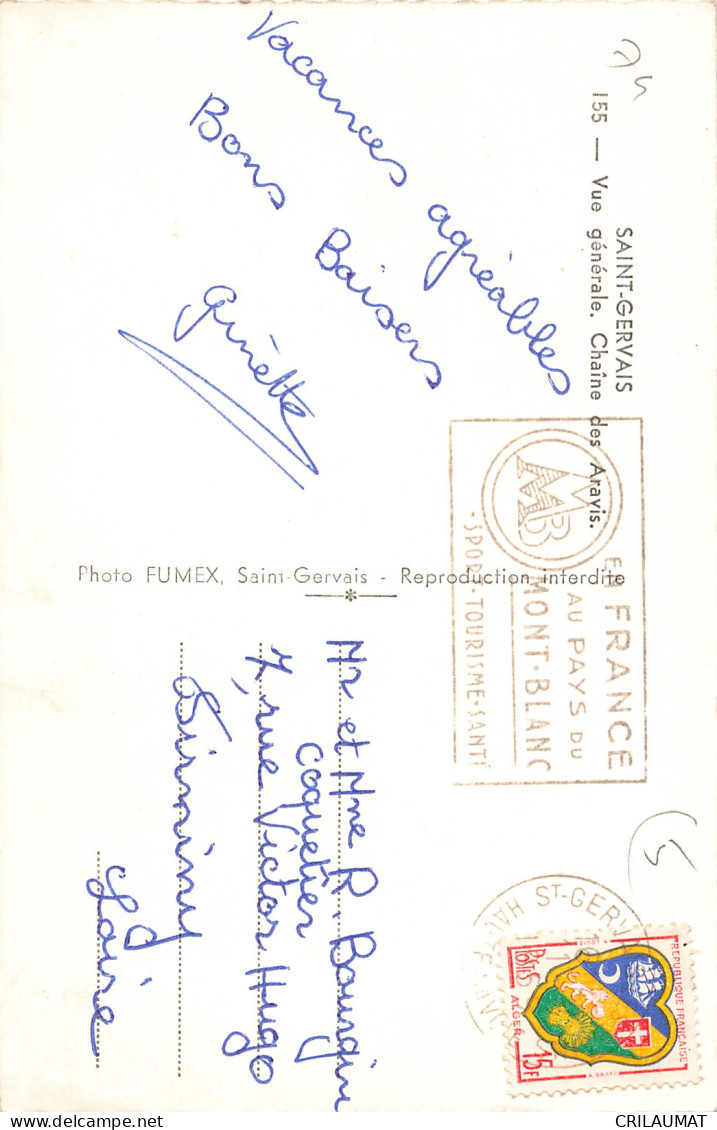 74
SAINT-GERVAIS
155 — Vue générale. Chaîne des Aravis.
Vacances agréables
Bons Baisers
Ginette
Photo FUMEX, Saint-Gervais - Reproduction interdite
EN FRANCE
AU PAYS DU
MONT-BLANC
-SPORT-TOURISME-SANTÉ
MB
(5
ST-GERV
HAUTE
REPUBLIQUE FRANÇAISE
POSTES
ALGER
15F
Mr et Mme R. Bourgin
Coquetier
7, rue Victor Hugo
Firminy
Loire
CRILAUMAT